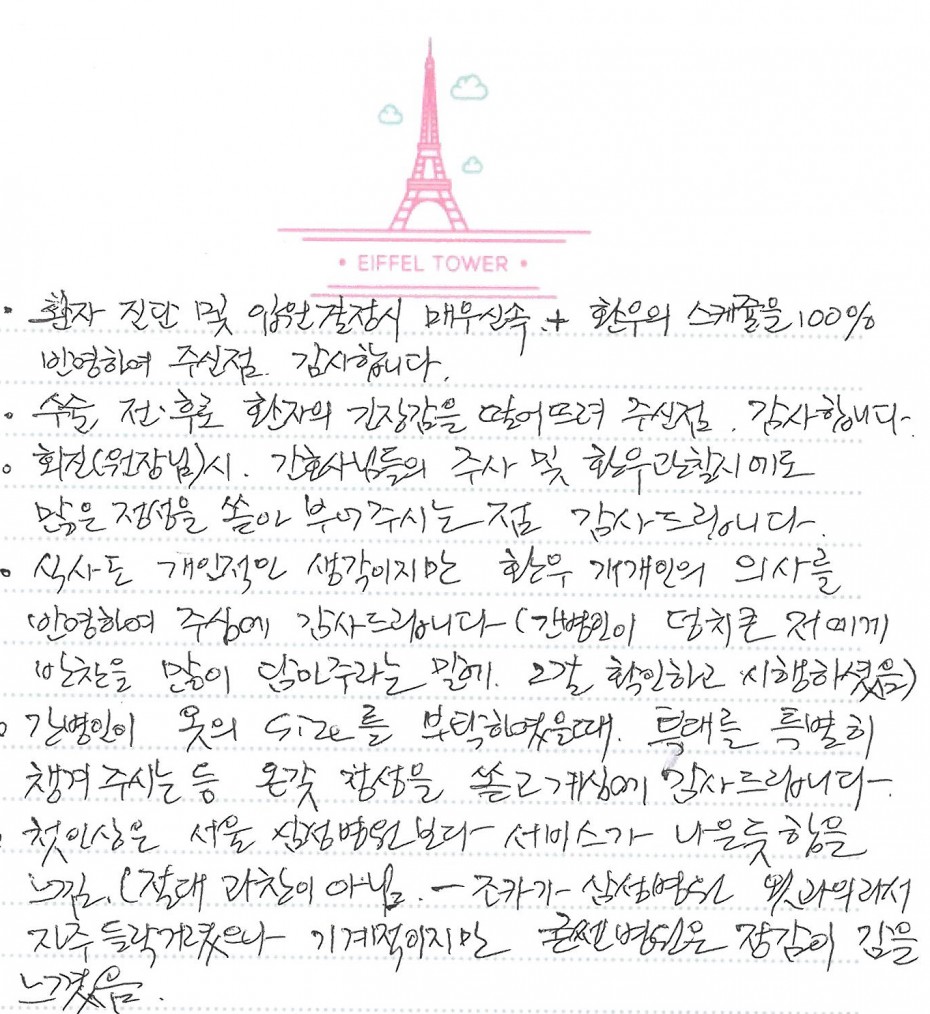 • EIFFEL TOWER •
• 환자 진단 및 입원결정시 매우신속 + 환우의 스케쥴을 100%
반영하여 주신점. 감사합니다.
• 수술, 전·후로 환자의 긴장감을 떨어뜨려 주신점. 감사합니다.
• 회진(원장님)시. 간호사님들의 주사 및 환우관찰시에도
많은 정성을 쏟아 부어주시는 점 감사드립니다.
• 식사도 개인적인 생각이지만 환우 개개인의 의사를
반영하여 주심에 감사드립니다 (간병인이 덩치큰 저에게
반찬을 많이 담아주라는 말에. 그걸 확인하고 시행하셨음)
• 간병인이 옷의 size를 부탁하였을때. 특대를 특별히
챙겨주시는 등 온갖 정성을 쏟고계심에 감사드립니다.
• 첫인상은 서울 삼성병원보다 서비스가 나은듯 함을
느낌. (절대 과찬이 아님. - 조카가 삼성병원
자주 들락거렸으나 기계적이지만 병원은 정감이 김을
느꼈음.